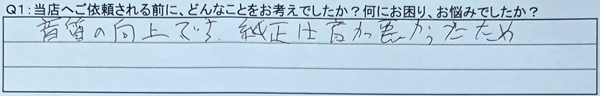 Q1:当店へご依頼される前に、どんなことをお考えでしたか？何にお困り、お悩みでしたか？
音質の向上です. 純正は音が悪かったため